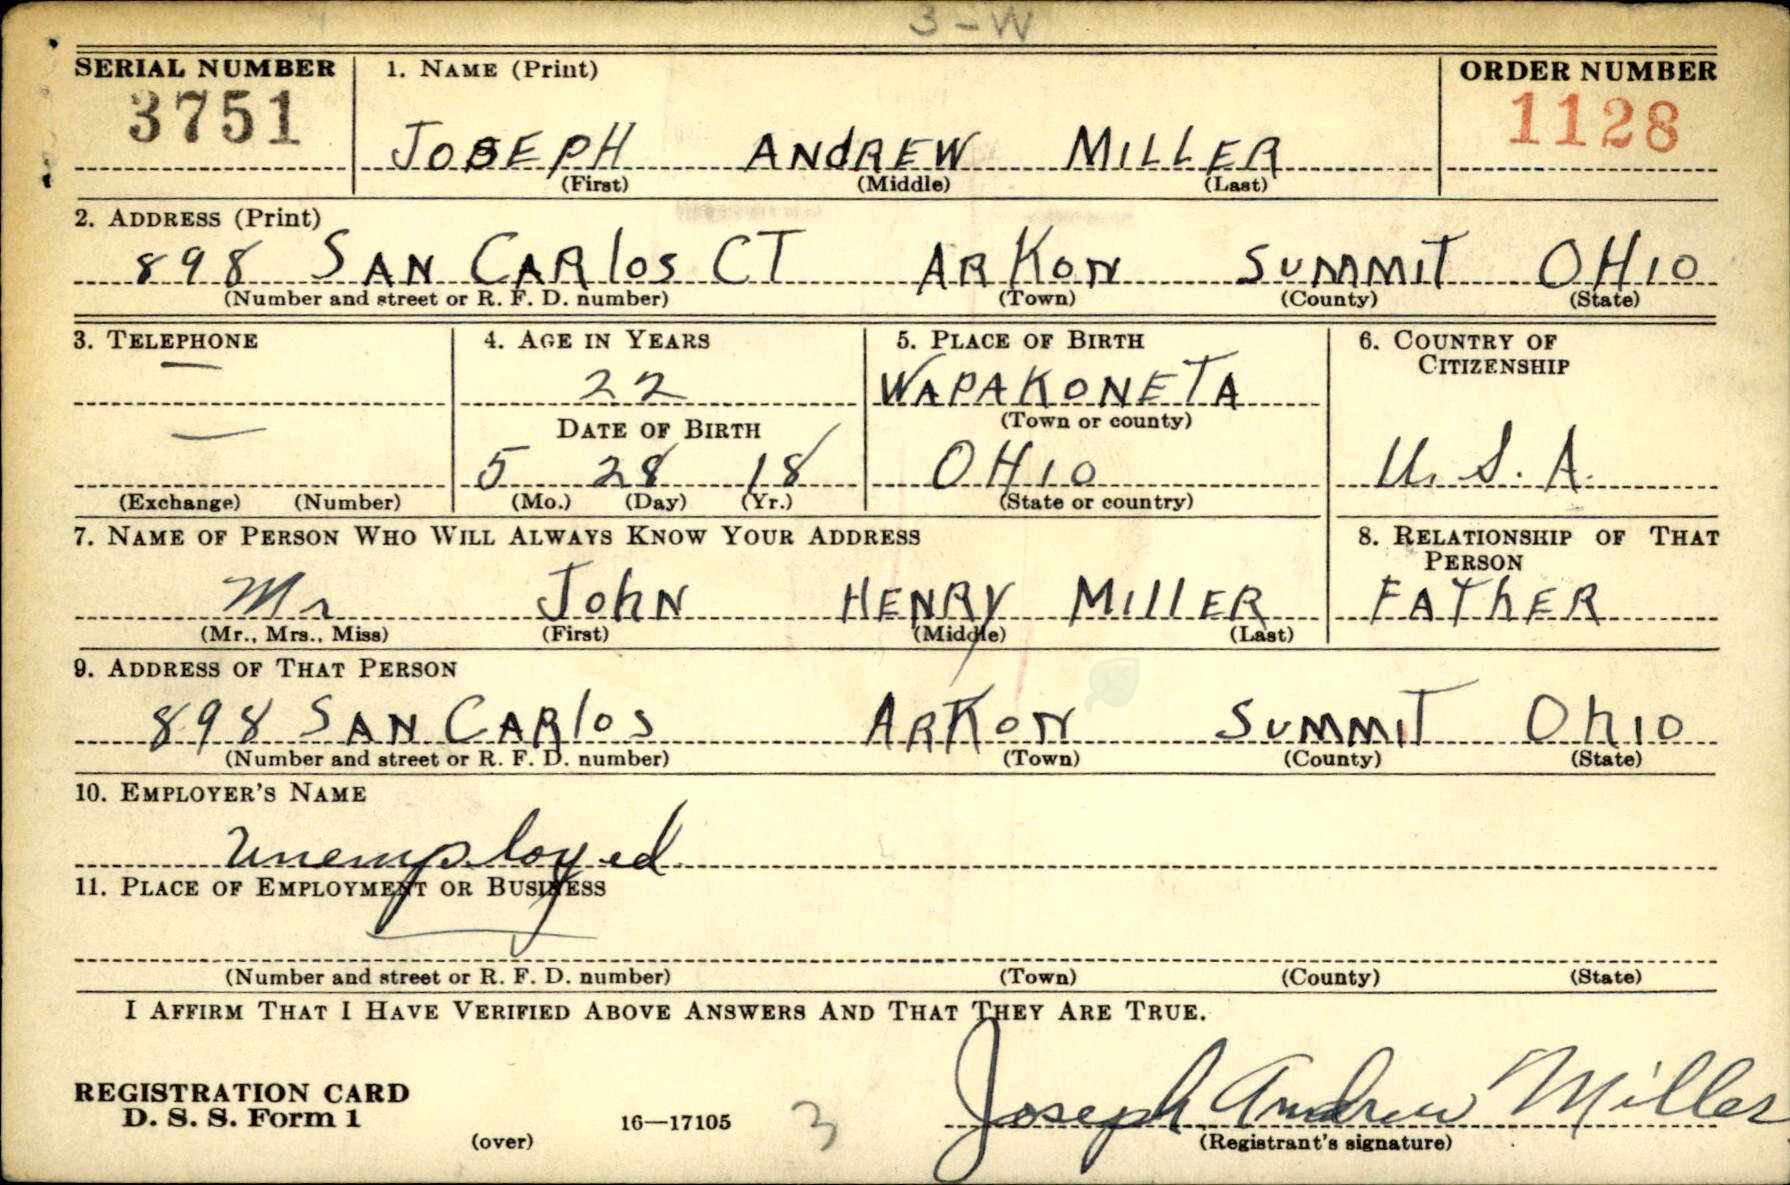 3-W
SERIAL NUMBER 1. NAME (Print) ORDER NUMBER
3751 JOSEPH ANDREW MILLER 1128
(First) (Middle) (Last)
2. ADDRESS (Print)
898 SAN CARlos CT ARKON SUMMIT OHIO
(Number and street or R. F. D. number) (Town) (County) (State)
3. TELEPHONE 4. AGE IN YEARS 5. PLACE OF BIRTH 6. COUNTRY OF CITIZENSHIP
— 22 WAPAKONETA
DATE OF BIRTH (Town or county)
— 5 28 18 OHIO U. S. A.
(Exchange) (Number) (Mo.) (Day) (Yr.) (State or country)
7. NAME OF PERSON WHO WILL ALWAYS KNOW YOUR ADDRESS 8. RELATIONSHIP OF THAT PERSON
Mr JohN HENRY MIllER FAThER
(Mr., Mrs., Miss) (First) (Middle) (Last)
9. ADDRESS OF THAT PERSON
898 SAN CARlos ARKON SUMMIT OhIO
(Number and street or R. F. D. number) (Town) (County) (State)
10. EMPLOYER'S NAME
Unemployed
11. PLACE OF EMPLOYMENT OR BUSINESS
(Number and street or R. F. D. number) (Town) (County) (State)
I AFFIRM THAT I HAVE VERIFIED ABOVE ANSWERS AND THAT THEY ARE TRUE.
REGISTRATION CARD Joseph Andrew Miller
D. S. S. Form 1 16—17105 3
(over) (Registrant's signature)